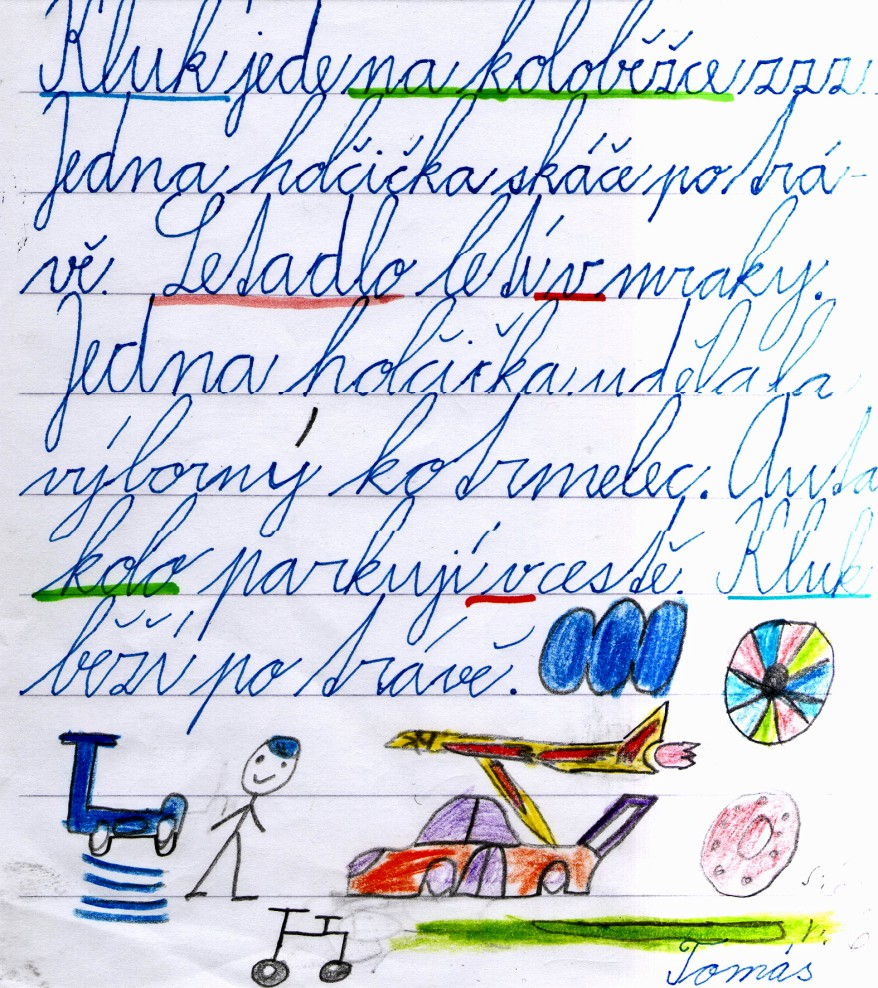 Kluk jede na koloběžce zzz.
Jedna holčička skáče po trá-
vě. Letadlo letí v mraky.
Jedna holčička udělala
výborný kotrmelec. Auta
kolo parkují v cestě. Kluk
běží po trávě.
Tomáš